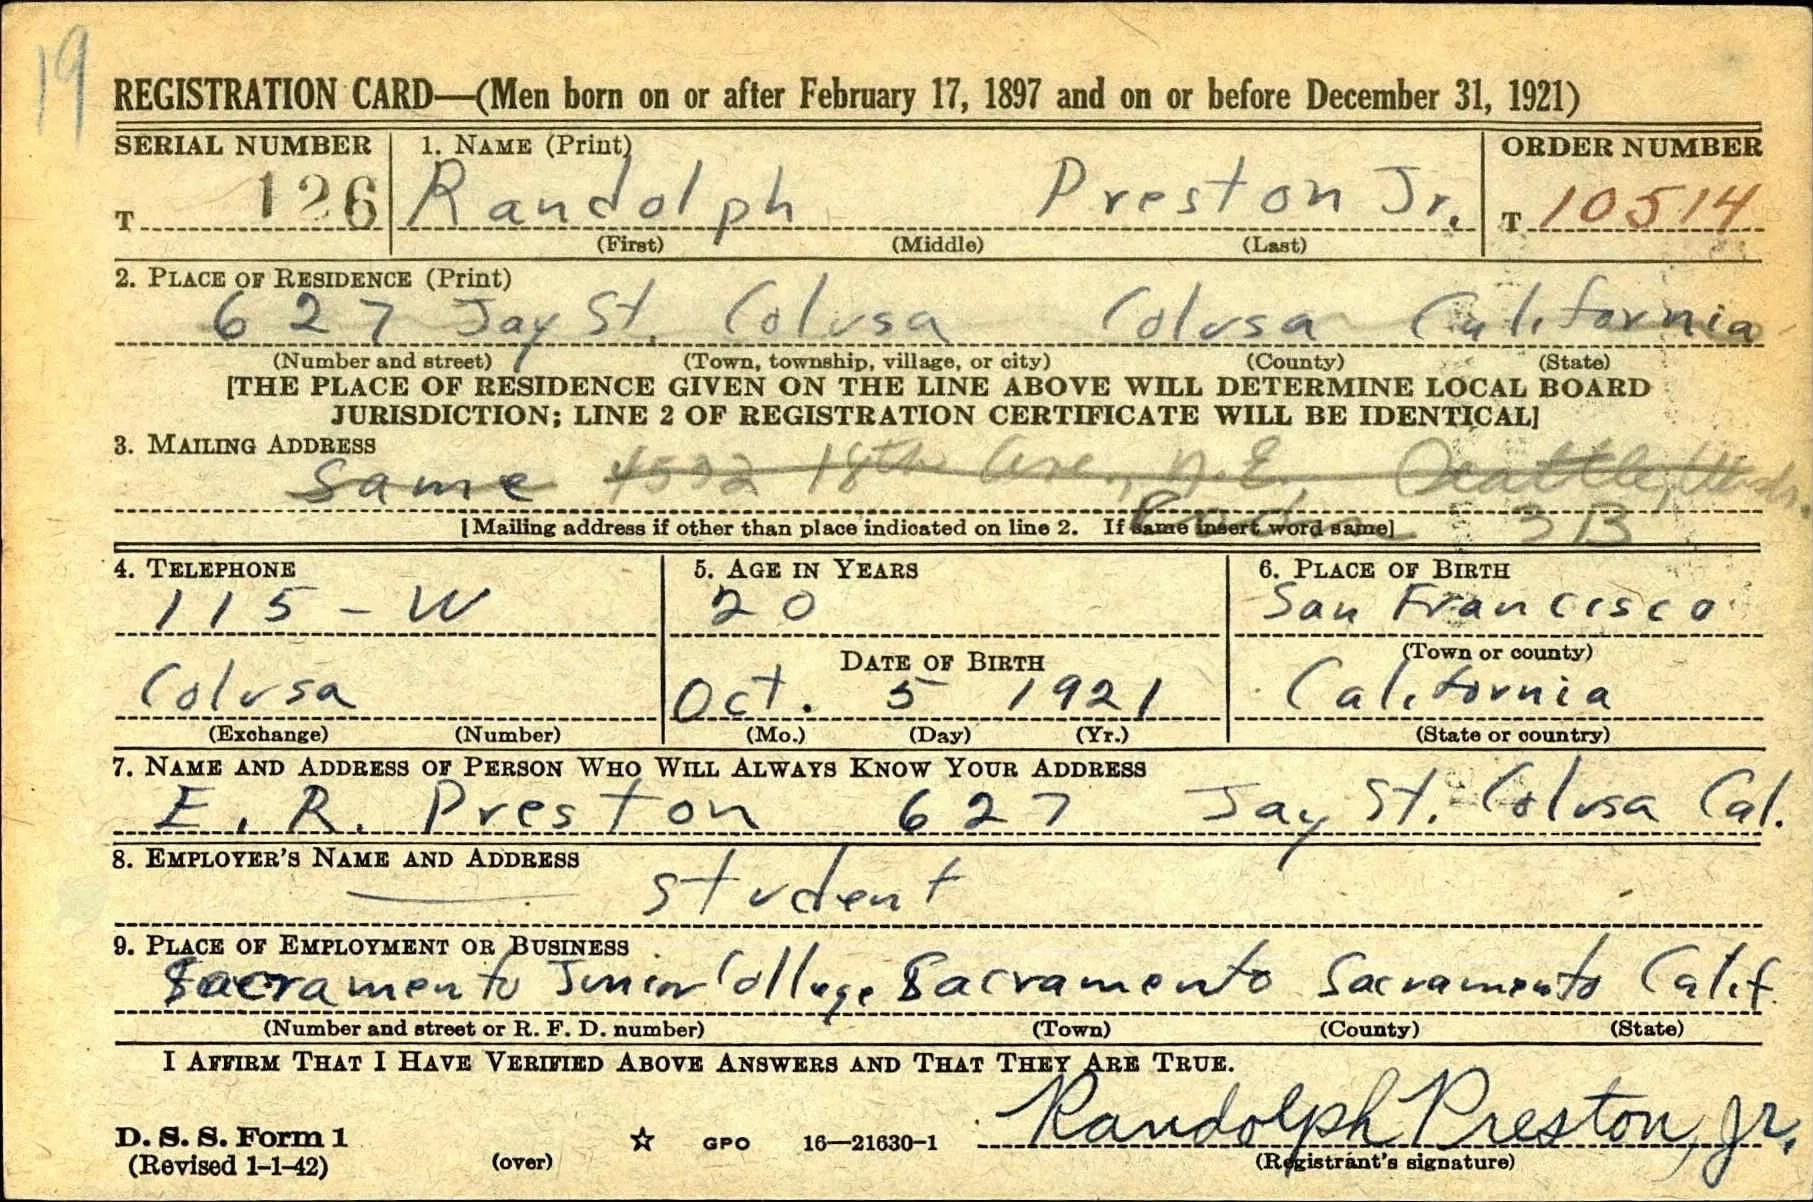 19
REGISTRATION CARD—(Men born on or after February 17, 1897 and on or before December 31, 1921)
SERIAL NUMBER 1. NAME (Print) ORDER NUMBER
T 126 Randolph Preston Jr. T 10514
(First) (Middle) (Last)
2. PLACE OF RESIDENCE (Print)
627 Jay St. Colusa Colusa California
(Number and street) (Town, township, village, or city) (County) (State)
[THE PLACE OF RESIDENCE GIVEN ON THE LINE ABOVE WILL DETERMINE LOCAL BOARD
JURISDICTION; LINE 2 OF REGISTRATION CERTIFICATE WILL BE IDENTICAL]
3. MAILING ADDRESS
Same 18th Ave., N.E. Seattle,
[Mailing address if other than place indicated on line 2. If same insert word same] 3B
4. TELEPHONE 5. AGE IN YEARS 6. PLACE OF BIRTH
115-W 20 San Francisco
(Town or county)
DATE OF BIRTH
Colusa Oct. 5 1921 California
(Exchange) (Number) (Mo.) (Day) (Yr.) (State or country)
7. NAME AND ADDRESS OF PERSON WHO WILL ALWAYS KNOW YOUR ADDRESS
E. R. Preston 627 Jay St. Colusa Cal.
8. EMPLOYER'S NAME AND ADDRESS
student
9. PLACE OF EMPLOYMENT OR BUSINESS
Sacramento Junior College Sacramento Sacramento Calif.
(Number and street or R. F. D. number) (Town) (County) (State)
I AFFIRM THAT I HAVE VERIFIED ABOVE ANSWERS AND THAT THEY ARE TRUE.
Randolph Preston, Jr.
D. S. S. Form 1 ☆ GPO 16—21630-1
(Revised 1-1-42) (over) (Registrant's signature)